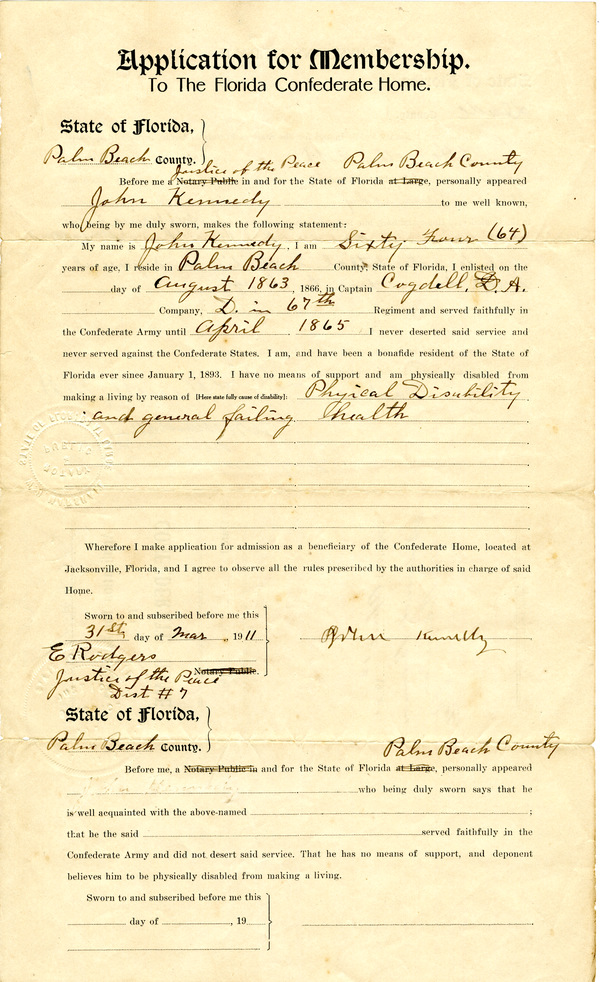 Application for Membership.
To The Florida Confederate Home.
State of Florida,
Palm Beach County.
Justice of the Peace Palm Beach County
Before me a Notary Public in and for the State of Florida at Large, personally appeared
John Kennedy to me well known,
who being by me duly sworn, makes the following statement:
My name is John Kennedy, I am Sixty Four (64)
years of age, I reside in Palm Beach County, State of Florida, I enlisted on the
day of August 1863, 1866, in Captain Cogdell, D. A.
Company, D. in 67th Regiment and served faithfully in
the Confederate Army until April 1865 I never deserted said service and
never served against the Confederate States. I am, and have been a bonafide resident of the State of
Florida ever since January 1, 1893. I have no means of support and am physically disabled from
making a living by reason of [Here state fully cause of disability]: Physical Disability
and general failing health
Wherefore I make application for admission as a beneficiary of the Confederate Home, located at
Jacksonville, Florida, and I agree to observe all the rules prescribed by the authorities in charge of said
Home.
Sworn to and subscribed before me this
31st day of Mar, 1911
John Kennedy
E Rodgers
Notary Public.
Justice of the Peace
Dist #7
State of Florida,
Palm Beach County.
Palm Beach County
Before me, a Notary Public in and for the State of Florida at Large, personally appeared
who being duly sworn says that he
is well acquainted with the above-named ;
that he the said served faithfully in the
Confederate Army and did not desert said service. That he has no means of support, and deponent
believes him to be physically disabled from making a living.
Sworn to and subscribed before me this
day of , 19